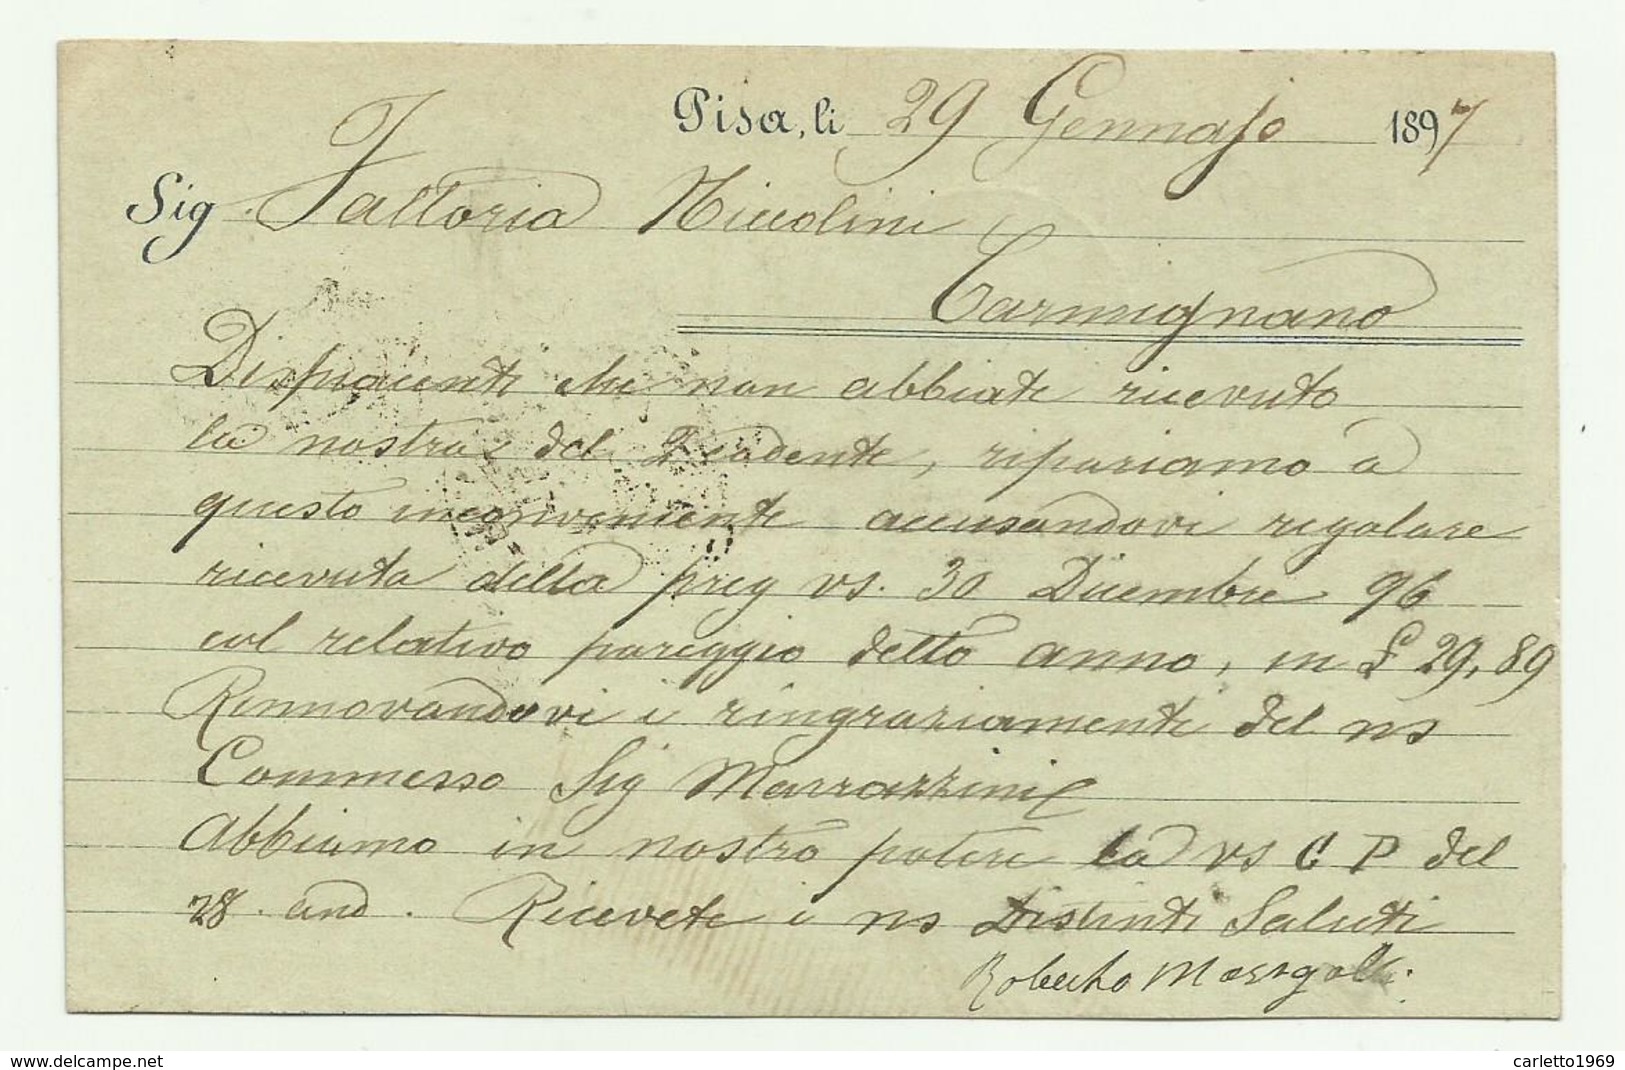 Pisa, li 29 Gennajo 1897
Sig. Fattoria Niccolini
Carmignano
Dispiacenti che non abbiate ricevuto
la nostra del, ripariamo a
questo inconveniente accusandovi regolare
ricevuta della preg vs. 30 Dicembre 96
col relativo pareggio detto anno, in £ 29,89
Rinnovandovi i ringraziamenti del ns
Commesso Sig Marrazzini
Abbiamo in nostro potere la vs C P del
28. and. Ricevete i ns Distinti Saluti
Roberto
www.delcampe.net
carletto1969